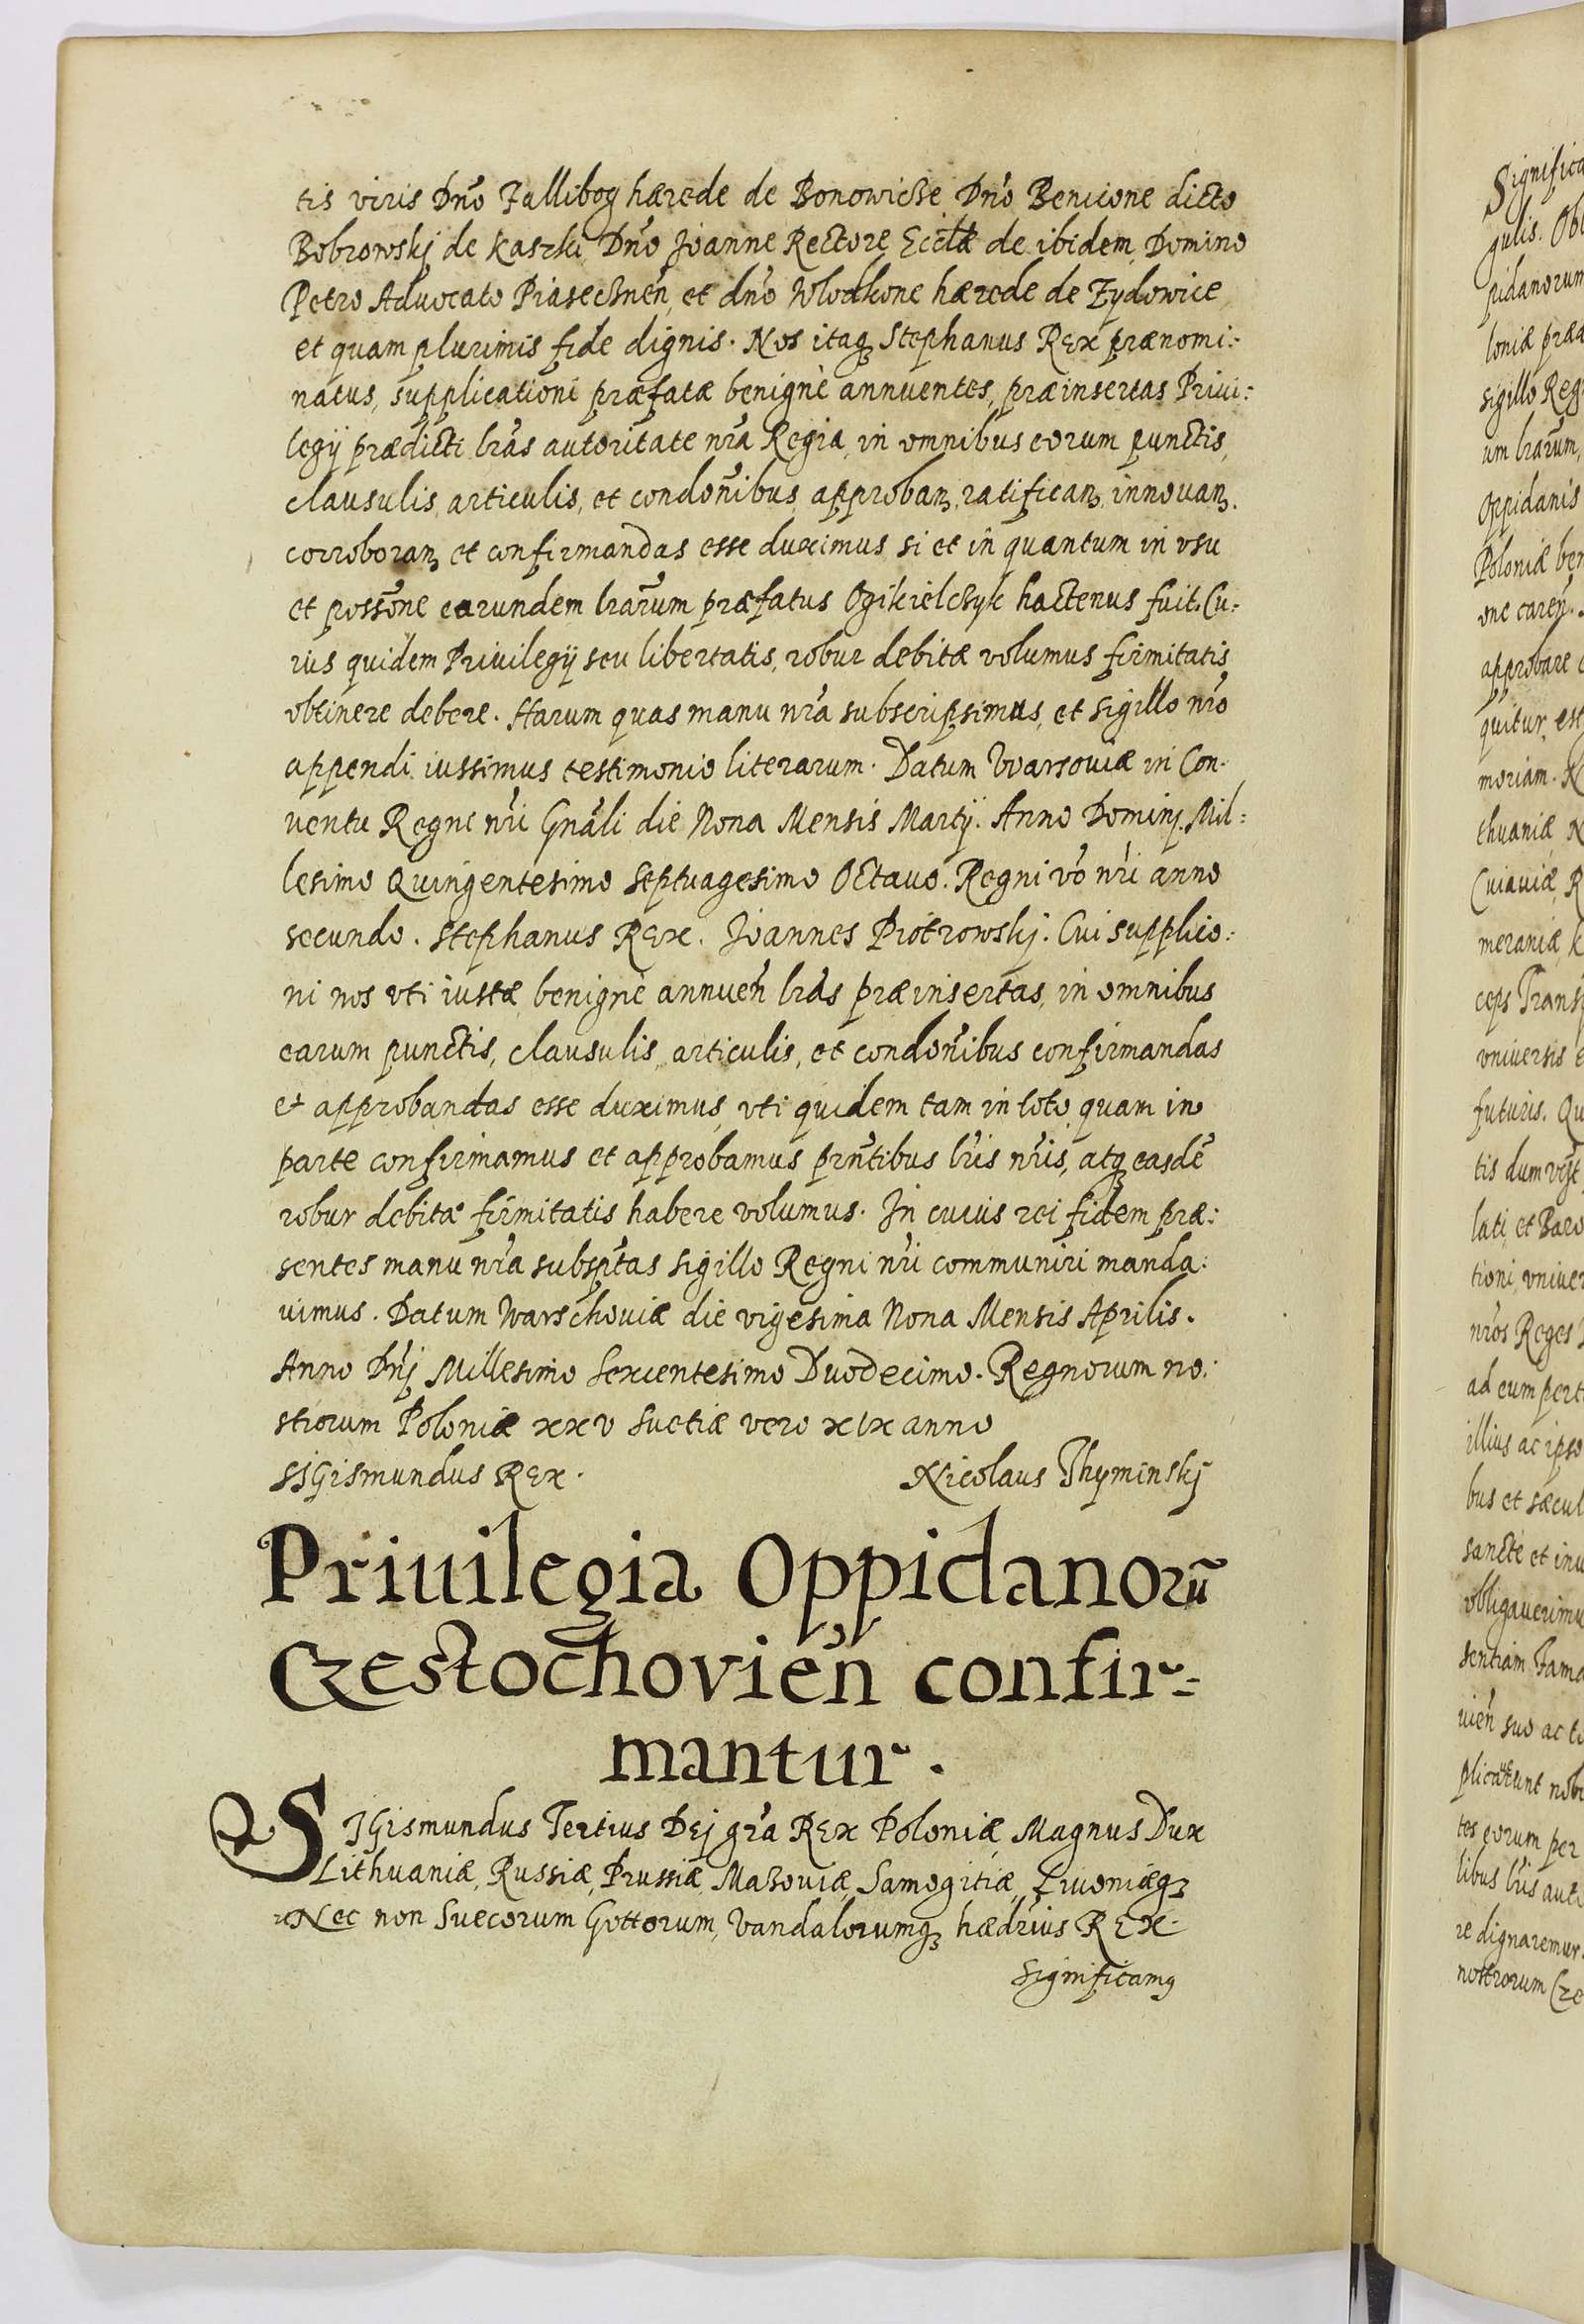 tis viris Dño Fallibog hærede de Bonowicze Dño Bencione dicto
Bobrowskj de Kaszki, Dño Joanne Rectore Ecctæ de ibidem, Domino
Petro Advocato Piasecznen̄, et dño Wlodkone hærede de Zydowice
et quam plurimis fide dignis. Nos itaqȝ Stephanus REx prænomi:
natus, supplicationi præfatæ benignè annuentes, præinsertas Priui:
legÿ prædicti lrãs autoritate nrã Regia, in omnibus eorum punctis,
clausulis, articulis, et condoñibus approbanȝ, ratificanȝ, innouanȝ.
corroboranȝ et confirmandas esse duximus si et in quantum in vsu
et possõne earundem lrarũm præfatus Ogikielczyk hactenus fuit. Cu:
ius quidem Priuilegÿ seu libertatis, robur debitæ volumus firmitatis
obtinere debere. Harum quas manu nrã subscripsimus, et sigillo nrõ
appendi iussimus testimonio literarum. Datum Warsouiæ in Con-
uentu Regni nrĩ Gnãli die Nona Mensis Martÿ. Anno Dominj. Mil:
lesimo Quingentesimo Septuagesimo Octauo. Regni võ nrĩ anno
secundo. Stephanus REx. Joannes Piotrowskj. Cui supplico:
ni nos vti iustæ benignè annuen̄ lrãs præinsertas, in omnibus
earum punctis, clausulis, articulis, et condoñibus confirmandas
et approbandas esse duximus, vti quidem tam in toto, quam in
parte confirmamus et approbamus prñtibus lrĩs nrĩs, atqȝ easdẽ
robur debitæ firmitatis habere volumus. In cuius rei fidem præ:
sentes manu nrã subsptãs sigillo Regni nrĩ communiri manda:
uimus. Datum Warschouiæ die vigesima Nona Mensis Aprilis.
Anno Dnĩj Millesimo Sexcentesimo Duodecimo. Regnorum no:
strorum Poloniæ xxv Suetiæ vero xix anno
SIGismundus REx. Nicolaus Thyminskj
Priuilegia Oppidanorũ
Czestochovien̄ confir-
mantur.
SIGismundus Tertius DEj grã REx Poloniæ, Magnus Dux
Lithuaniæ, Russiæ, Prussiæ, Mazouiæ, Samogitiæ, Liuoniæqȝ
Nec non Suecorum Gottorum, Vandalorumqȝ hædrĩus REx.
Significamȝ
Significa
gulis. Ob
pidanorum
loniæ præa
sigillo Reg
um lrarũm,
Oppidanis
Poloniæ ben
one caren̄.
approbare
quitur est
moriam. N
thuaniæ N
Cuiauiæ, R
meraniæ, K
ceps Trans
vniuersis e
futuris. Qu
tis dum
lati, et Baro
tioni, vniuer
nrõs Reges
ad eum pert
illius ac ipso
bus et sæcul
sanctè et inu
obligauerimu
sentiam Fama
uien̄ suo ac to
nobi
tes eorum per
libus lrĩs auto
re dignaremur.
nostrorum Cze